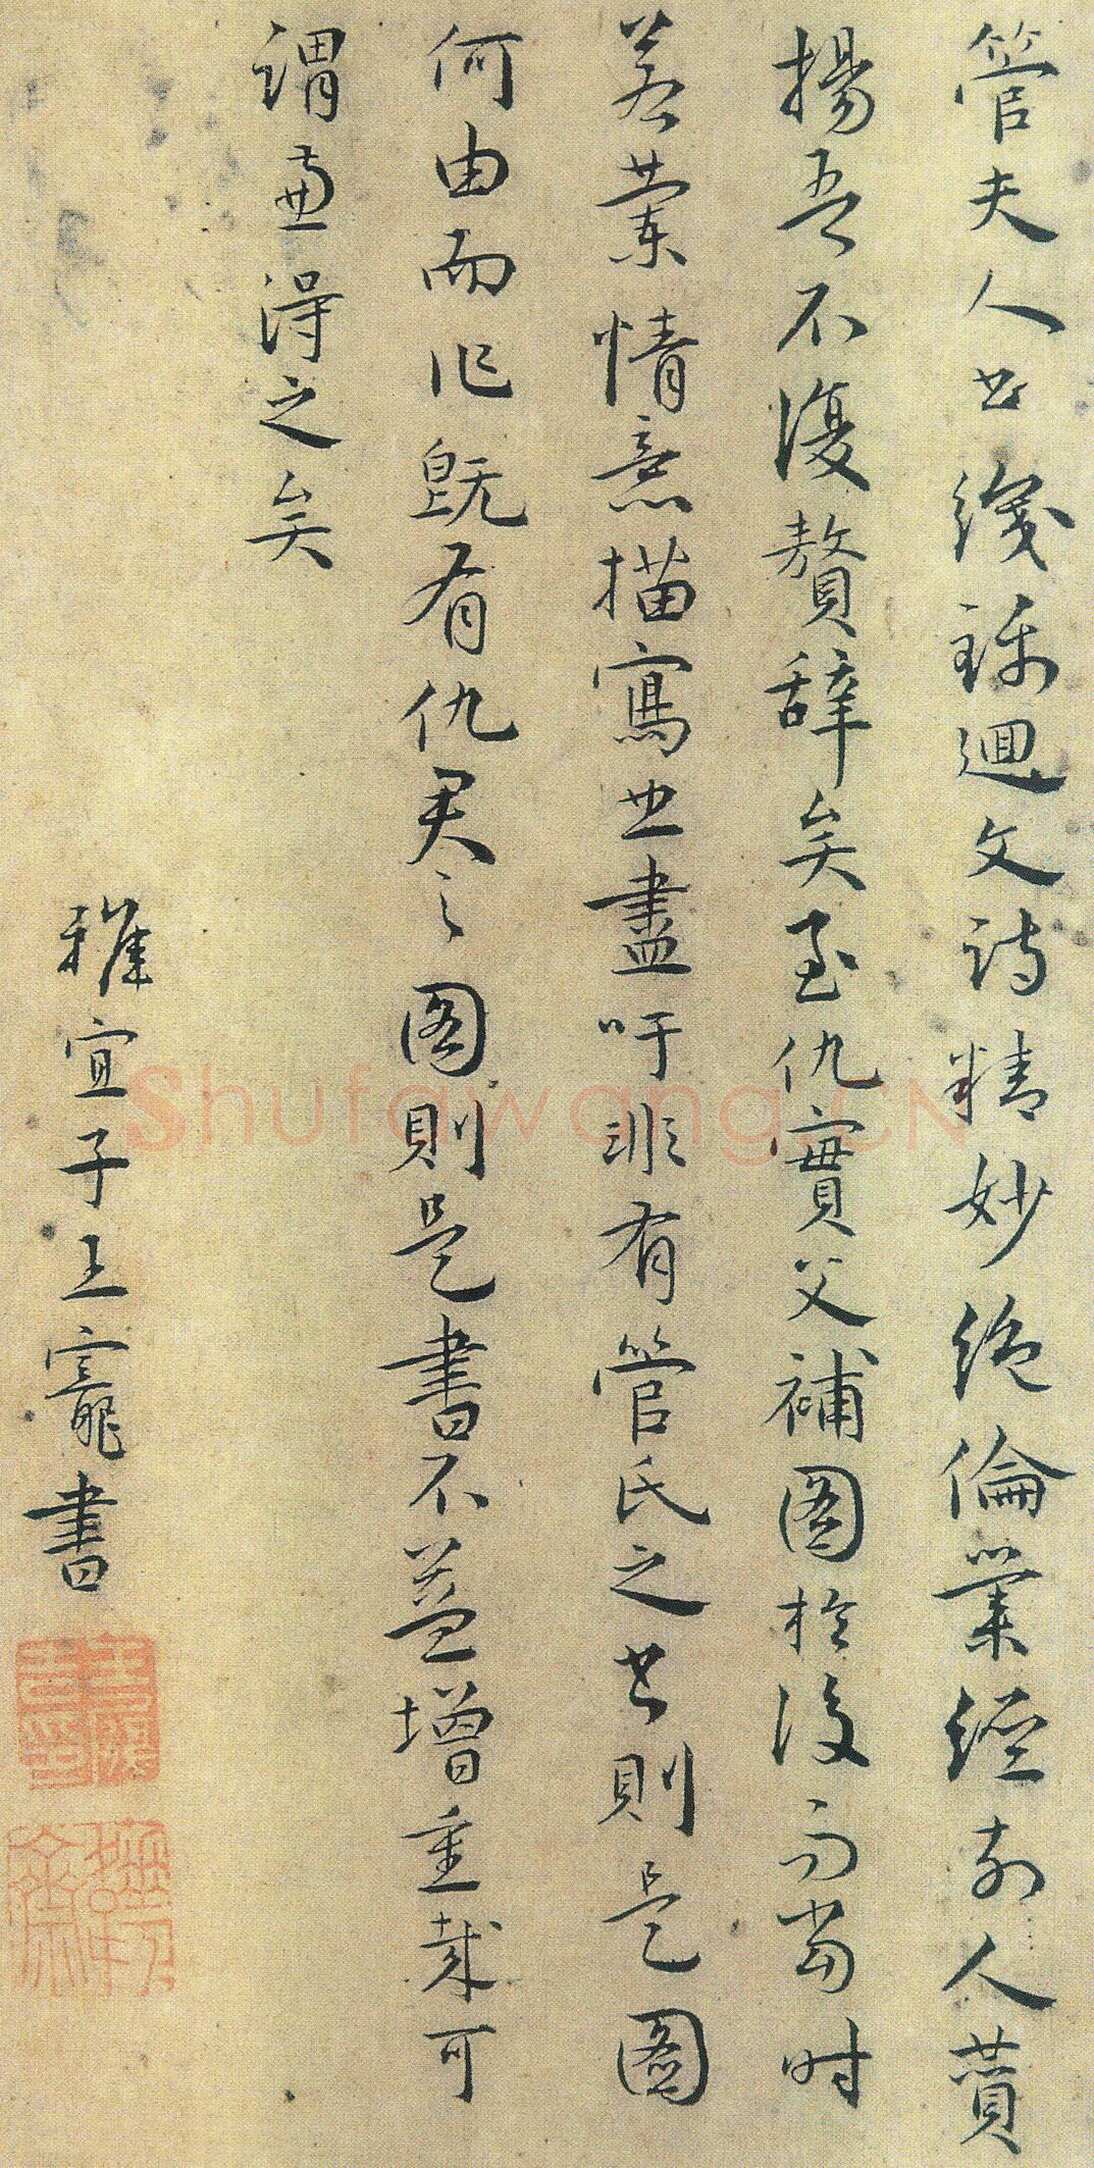 管夫人書織錦迴文詩精妙絕倫業經前人贊
揚吾不復贅辭矣至仇實父補圖於後而當時
若蘭情意描寫也盡吁非有管氏之書則是圖
何由而作既有仇君之圖則是書不益增重哉可
謂兼得之矣
雅宜子王寵書
Shufawang.CN